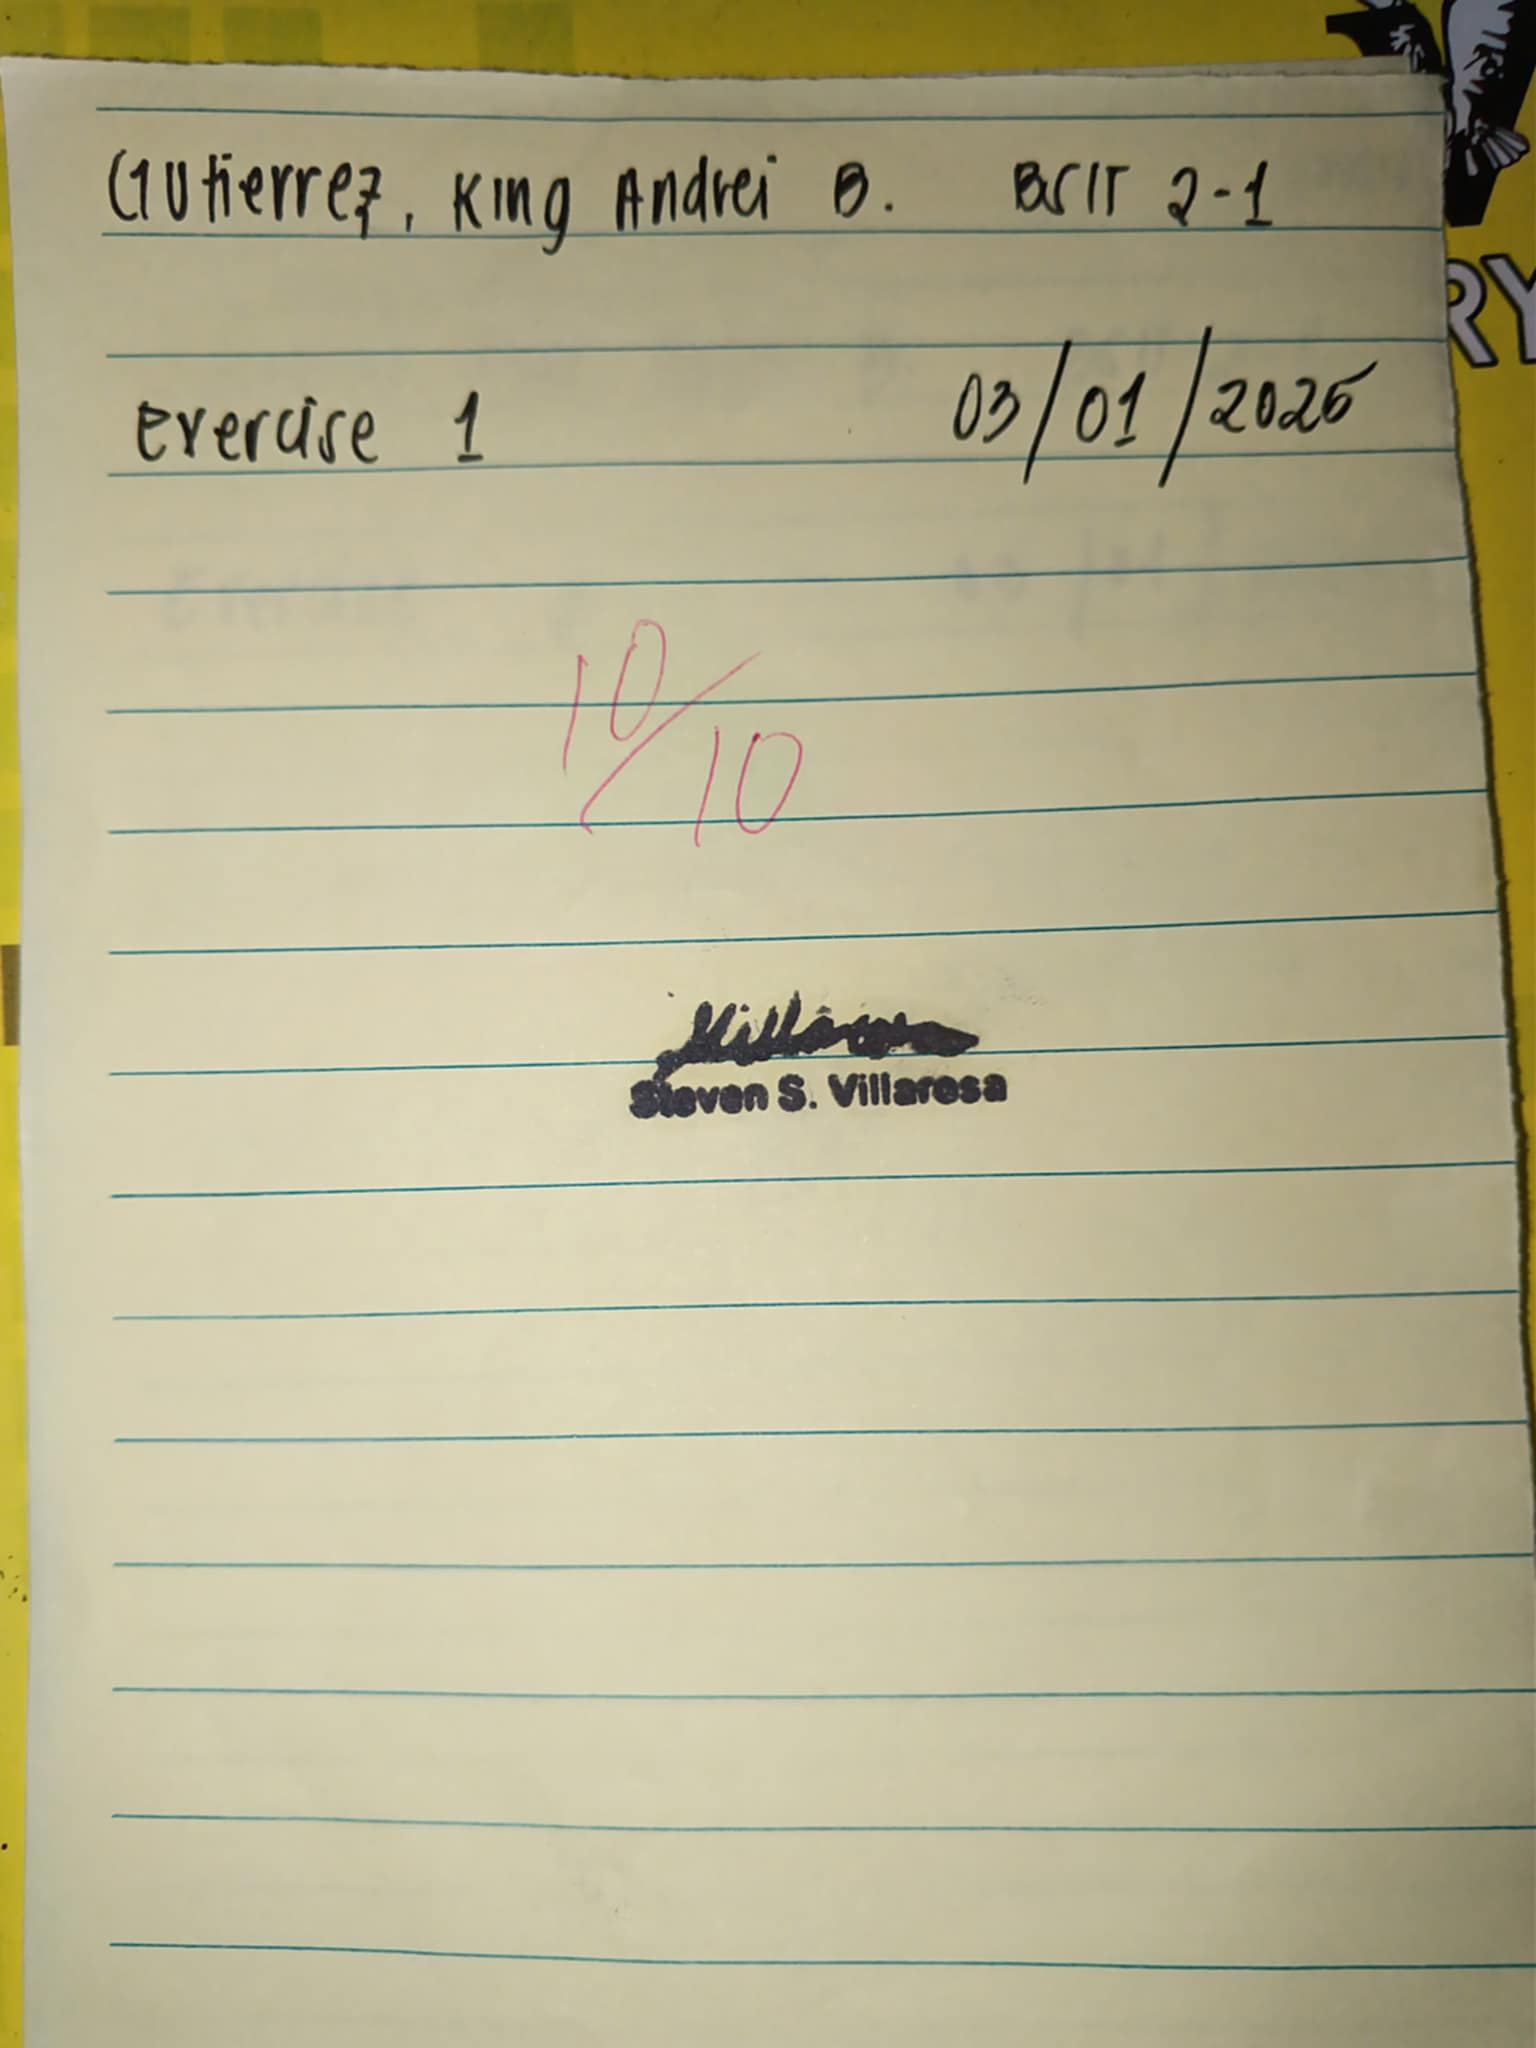 Gutierrez, King Andrei B. BSIT 2-1
RY
Exercise 1 03/01/2025
10/10
Steven S. Villaresa